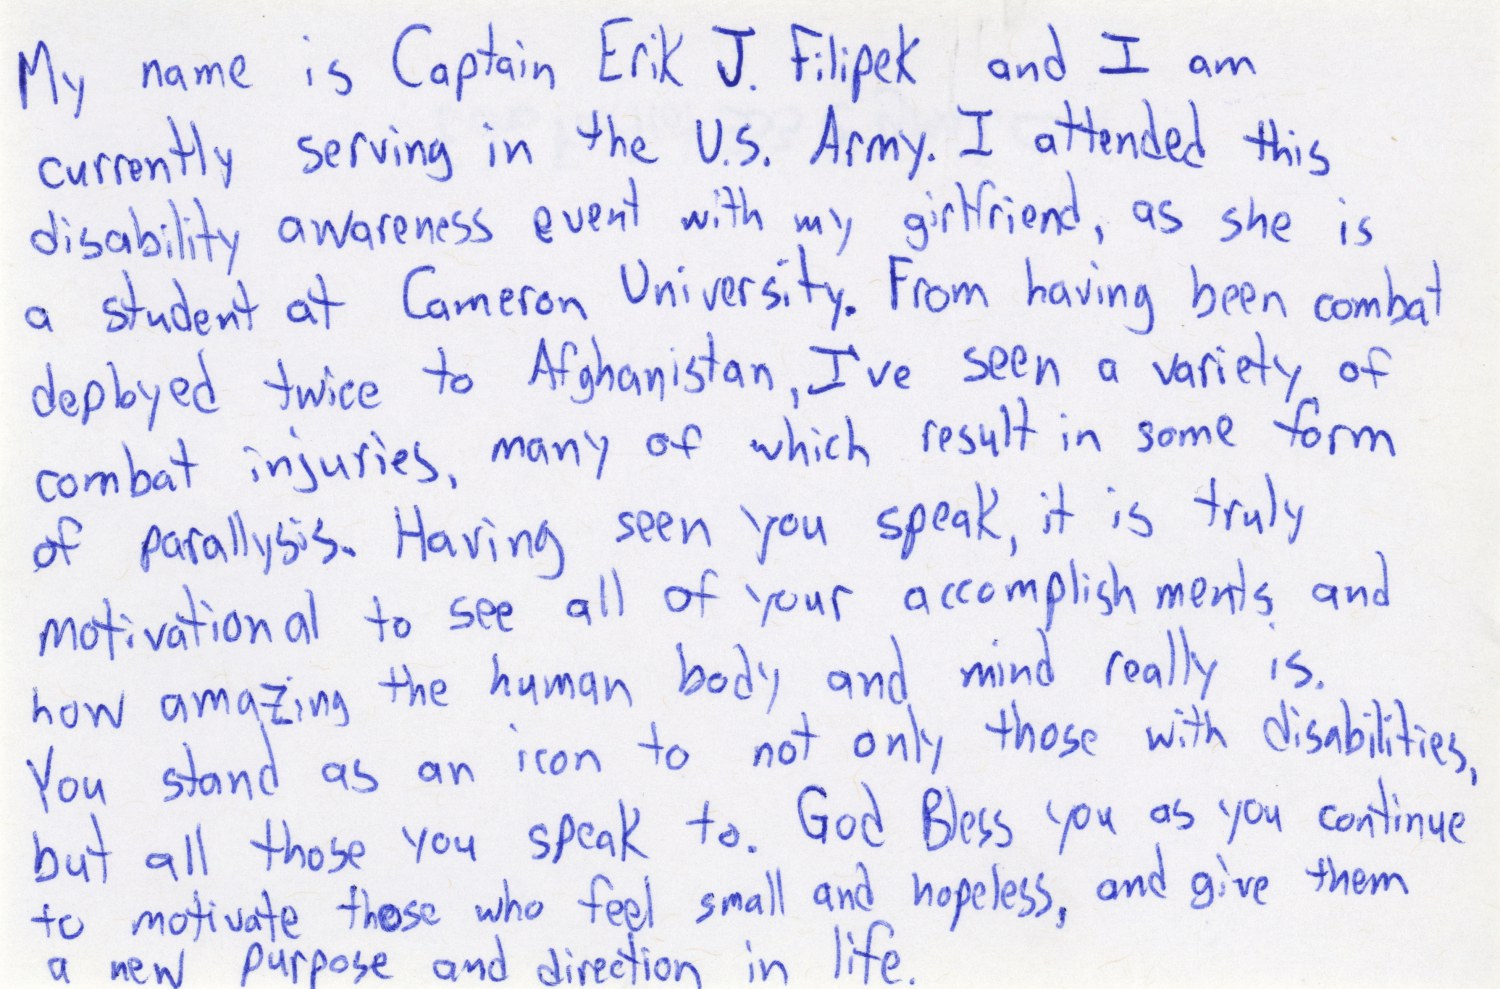 My name is Captain Erik J. Filipek and I am
currently serving in the U.S. Army. I attended this
disability awareness event with my girlfriend, as she is
a student at Cameron University. From having been combat
deployed twice to Afghanistan, I've seen a variety of
combat injuries, many of which result in some form
of parallysis. Having seen you speak, it is truly
motivational to see all of your accomplishments and
how amazing the human body and mind really is.
You stand as an icon to not only those with disabilities,
but all those you speak to. God Bless you as you continue
to motivate those who feel small and hopeless, and give them
a new purpose and direction in life.